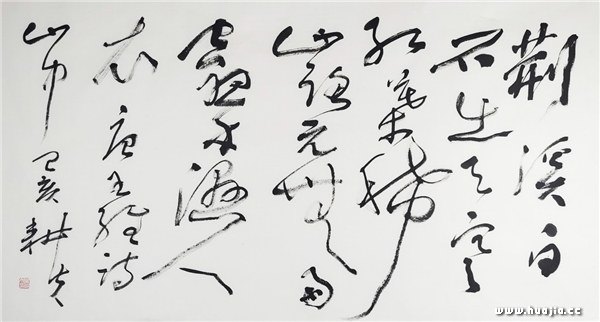 荆溪白
石出天寒
红葉稀
山路元無雨
空翠濕人
衣 唐王維詩
山中 己亥 耕
www.huajia.cc